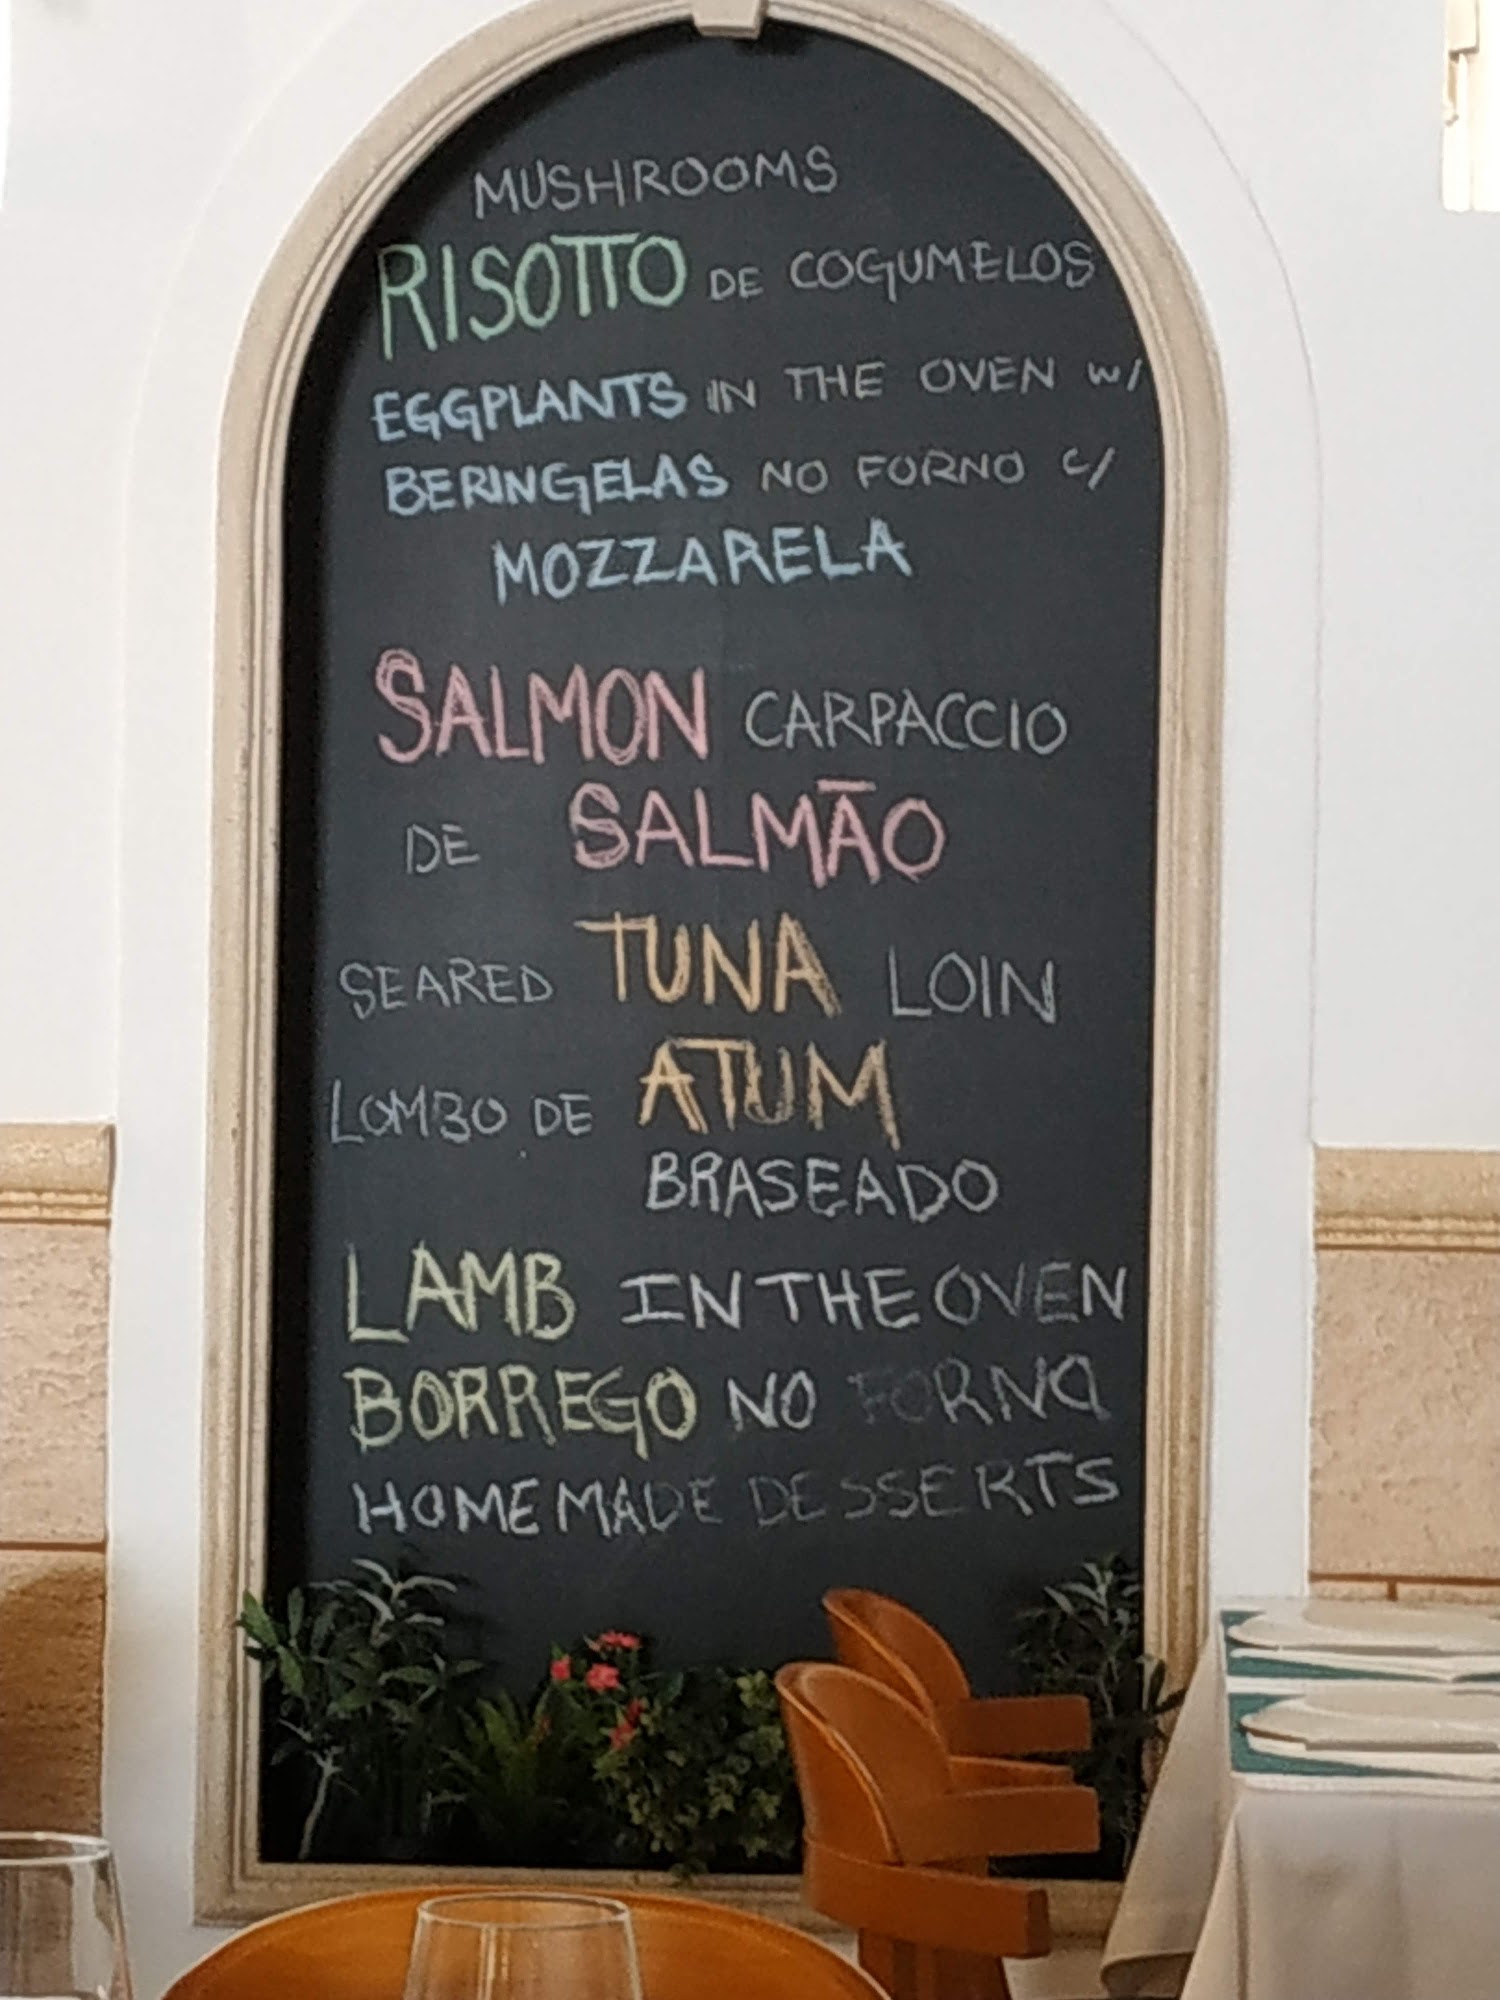 MUSHROOMS
RISOTTO DE COGUMELOS
EGGPLANTS IN THE OVEN w/
BERINGELAS NO FORNO c/
MOZZARELA
SALMON CARPACCIO
DE SALMÃO
SEARED TUNA LOIN
LOMBO DE ATUM
BRASEADO
LAMB IN THE OVEN
BORREGO NO FORNO
HOMEMADE DESSERTS